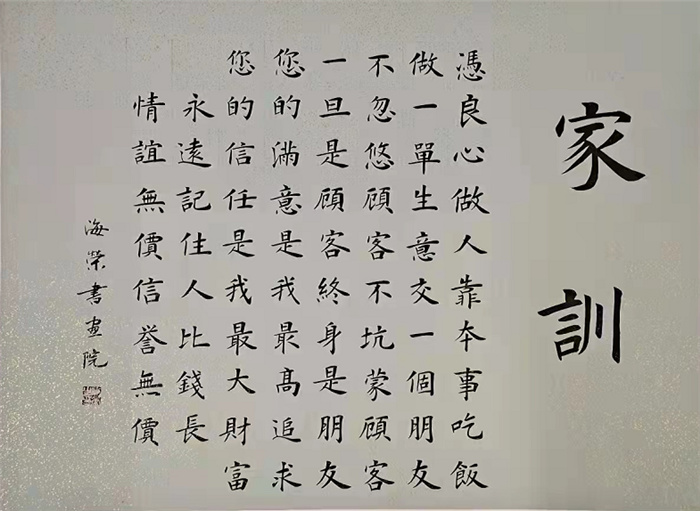 家訓
憑良心做人靠本事吃飯
做一單生意交一個朋友
不忽悠顧客不坑蒙顧客
一旦是顧客終身是朋友
您的滿意是我最高追求
您的信任是我最大財富
永遠記住人比錢長
情誼無價信誉無價
海榮書畫院